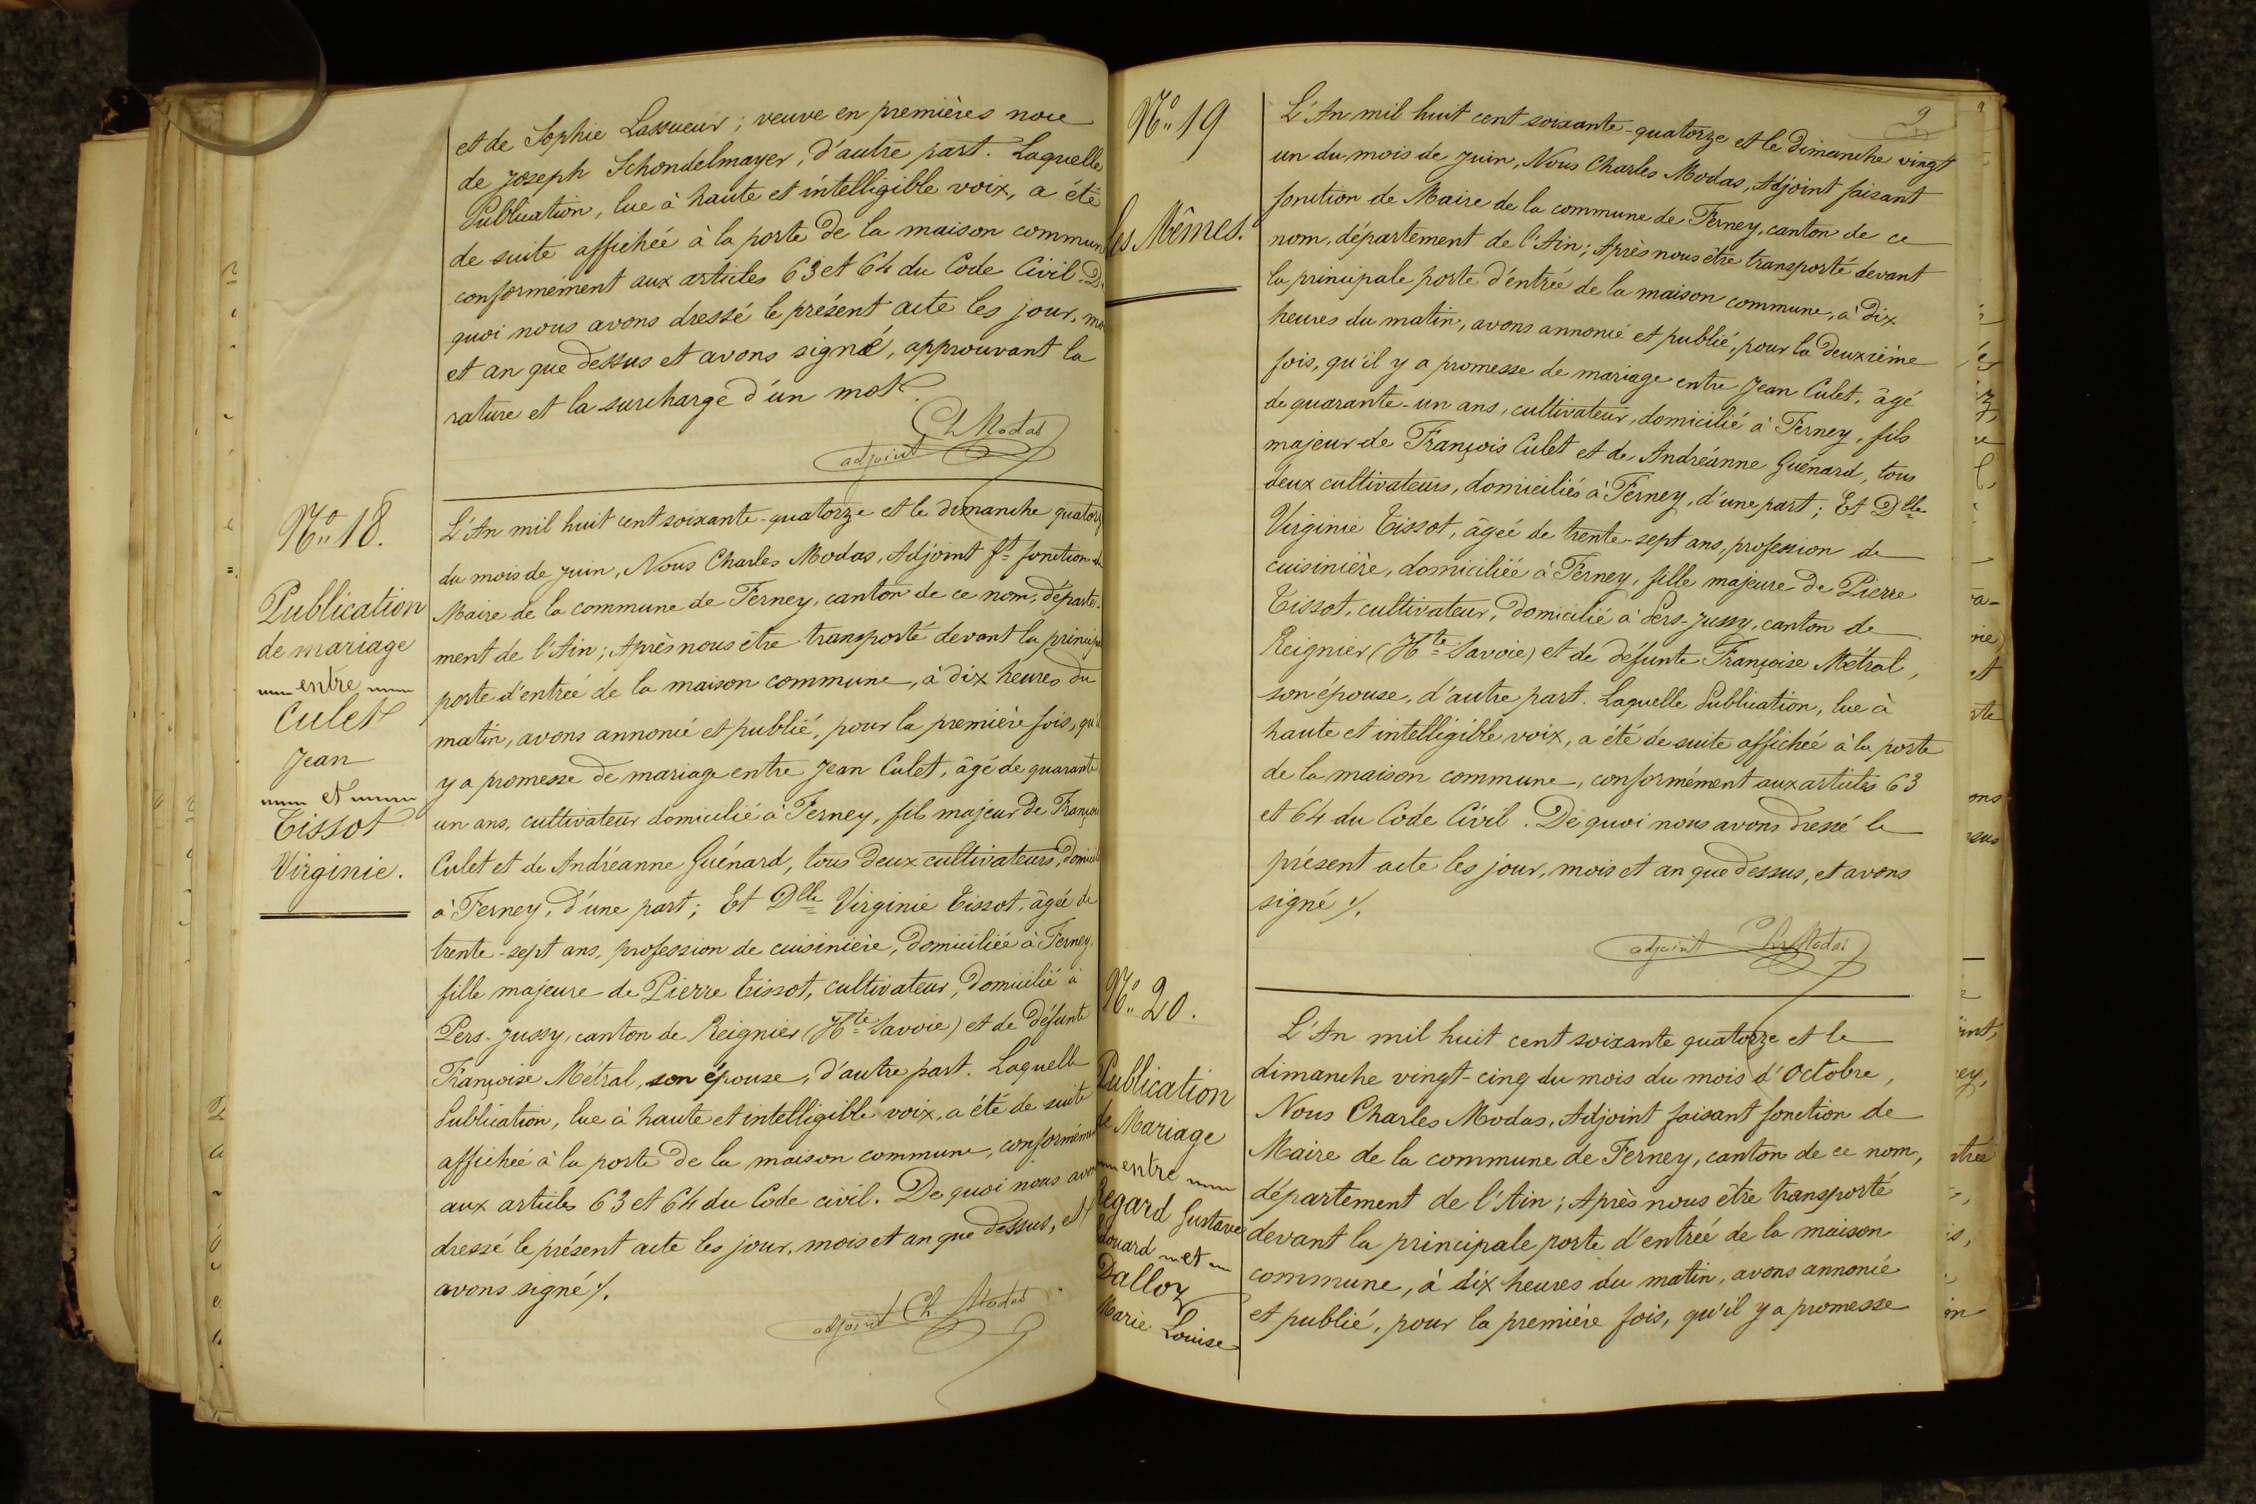 et de Sophie Lassueur ; veuve en premières noce
de Joseph Schondelmayer, d'autre part. Laquelle
Publication, lue à haute et intelligible voix, a été
de suite affichée à la porte de la maison commun
conformément aux articles 63 et 64 du Code Civil. D
quoi nous avons dressé le présent acte les jour, mo
et an que dessus et avons signé, approuvant la
rature et la surcharge d'un mot.
Ch Modas
adjoint
N° 18.
Publication
de mariage
entre
Culet
Jean
et
Tissot
Virginie.
L'An mil huit cent soixante-quatorze et le dimanche quatorz
du mois de Juin, Nous Charles Modas, Adjoint ft fonction de
Maire de la commune de Ferney, canton de ce nom, départe-
ment de l'Ain ; Après nous être transporté devant la princip
porte d'entrée de la maison commune, à dix heures du
matin, avons annoncé et publié, pour la première fois, qu'i
y a promesse de mariage entre Jean Culet, âgé de quarante
un ans, cultivateur domicilié à Ferney, fils majeur de Françoi
Culet et de Andréanne Guénard, tous deux cultivateurs, domicil
à Ferney, d'une part ; Et Dlle Virginie Tissot, âgée de
trente-sept ans, profession de cuisinière, domiciliée à Ferney,
fille majeure de Pierre Tissot, cultivateur, domicilié à
Pers-Jussy, canton de Reignier (Hte Savoie) et de défunte
Françoise Métral, son épouse, d'autre part. Laquelle
Publication, lue à haute et intelligible voix, a été de suite
affichée à la porte de la maison commune, conformémen
aux articles 63 et 64 du Code civil. De quoi nous avon
dressé le présent acte les jour, mois et an que dessus, et
avons signé ./.
adjoint Ch. Modas
N° 19
les Mêmes.
9
L'An mil huit cent soixante-quatorze et le dimanche vingt
un du mois de Juin, Nous Charles Modas, Adjoint faisant
fonction de Maire de la commune de Ferney, canton de ce
nom, département de l'Ain ; Après nous être transporté devant
la principale porte d'entrée de la maison commune, à dix
heures du matin, avons annoncé et publié, pour la deuxième
fois, qu'il y a promesse de mariage entre Jean Culet, âgé
de quarante-un ans, cultivateur, domicilié à Ferney, fils
majeur de François Culet et de Andréanne Guénard, tous
deux cultivateurs, domiciliés à Ferney, d'une part ; Et Dlle
Virginie Tissot, âgée de trente-sept ans, profession de
cuisinière, domiciliée à Ferney, fille majeure de Pierre
Tissot, cultivateur, domicilié à Pers-Jussy, canton de
Reignier (Hte Savoie) et de défunte Françoise Métral,
son épouse, d'autre part. Laquelle Publication, lue à
haute et intelligible voix, a été de suite affichée à la porte
de la maison commune, conformément aux articles 63
et 64 du Code Civil. De quoi nous avons dressé le
présent acte les jour, mois et an que dessus, et avons
signé ./.
adjoint Ch Modas
N° 20.
Publication
de Mariage
entre
Regard Gustave
Edouard et
Dalloz
Marie Louise
L'An mil huit cent soixante quatorze et le
dimanche vingt-cinq du mois du mois d'Octobre,
Nous Charles Modas, Adjoint faisant fonction de
Maire de la commune de Ferney, canton de ce nom,
département de l'Ain ; Après nous être transporté
devant la principale porte d'entrée de la maison
commune, à dix heures du matin, avons annoncé
et publié, pour la première fois, qu'il y a promesse